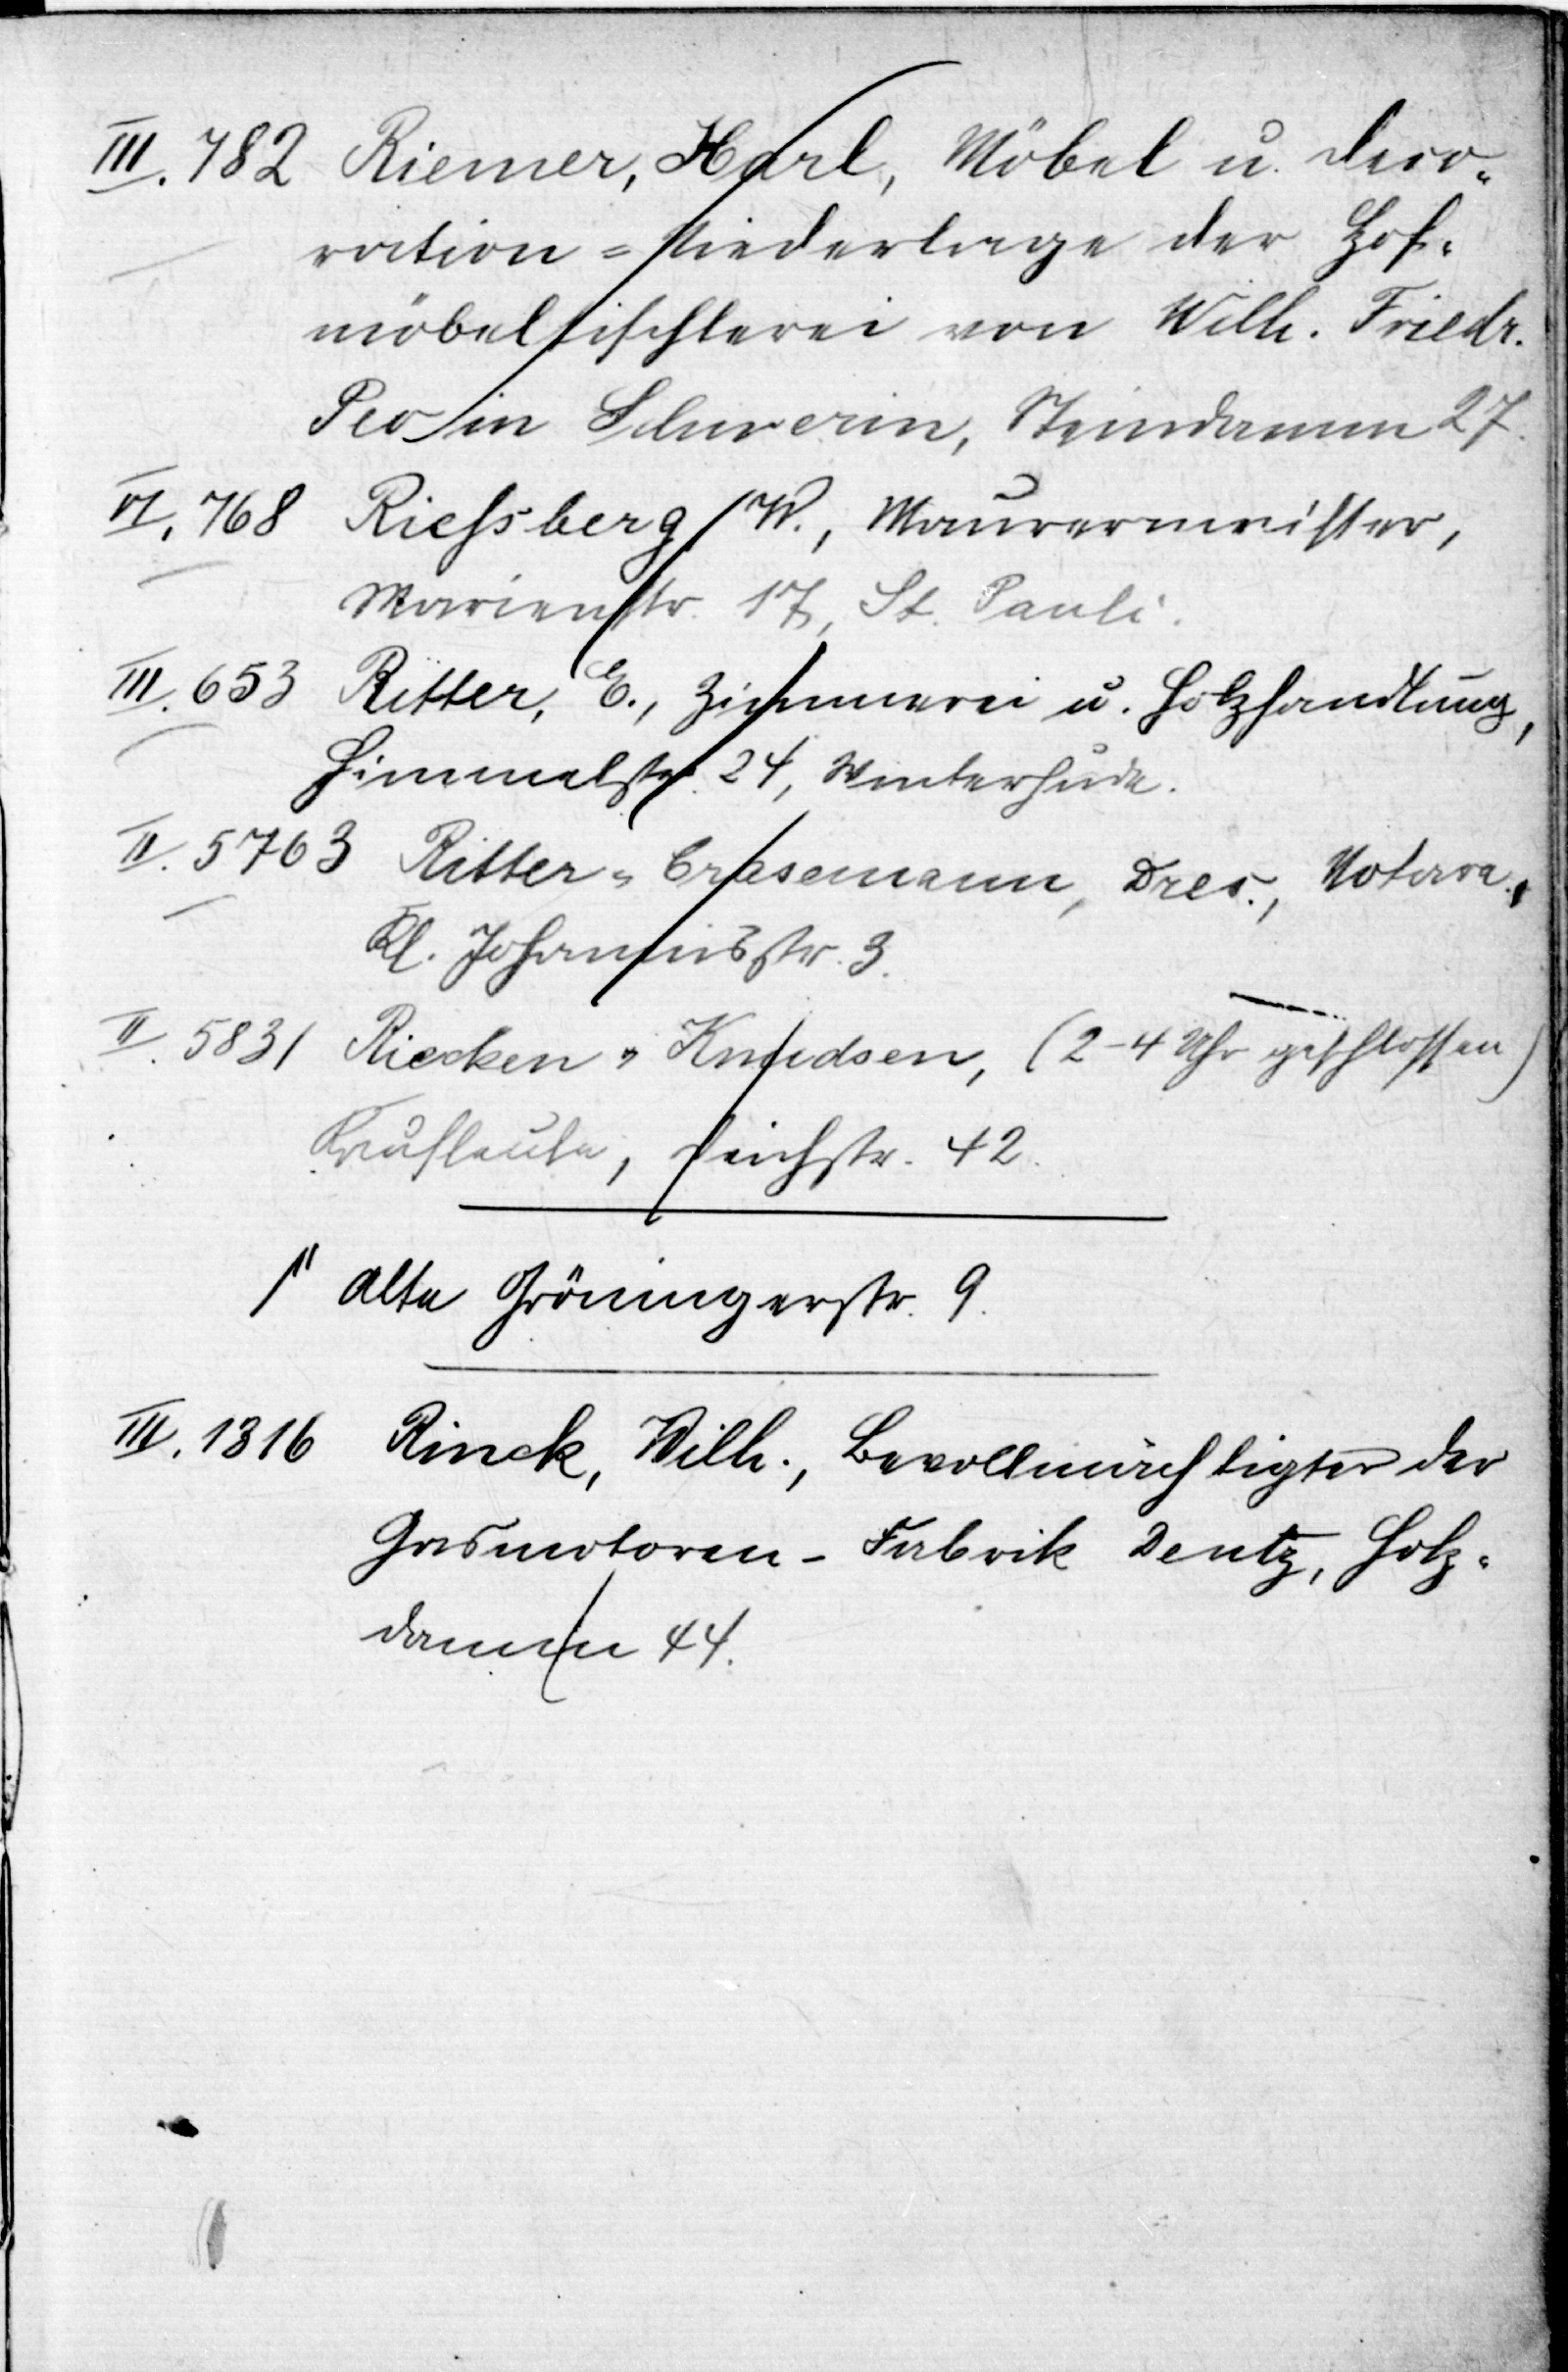 III. 782 Riemer, Karl, Möbel u. Deco-
ration = Niederlage der Hof-
möbeltischlerei von Wilh. Friedr.
Peo in Schwerin, Steindamm 27.
VI. 768 Riessberg, W., Maurermeister,
Marienstr. 17, St. Pauli.
III. 653 Ritter, E., Zimmerei u. Holzhandlung,
Himmelstr. 24, Winterhude.
II. 5763 Ritter & Crasemann, Dres., Notare,
Kl. Johannisstr. 3.
II. 5831 Riecken & Knudsen, (2-4 Uhr geschlossen)
Kaufleute, Deichstr. 42.
alte Gröningerstr. 9.
III. 1316 Rinck, Wilh., Bevollmächtigter der
Gasmotoren - Fabrik Deutz, Holz-
damm 44.